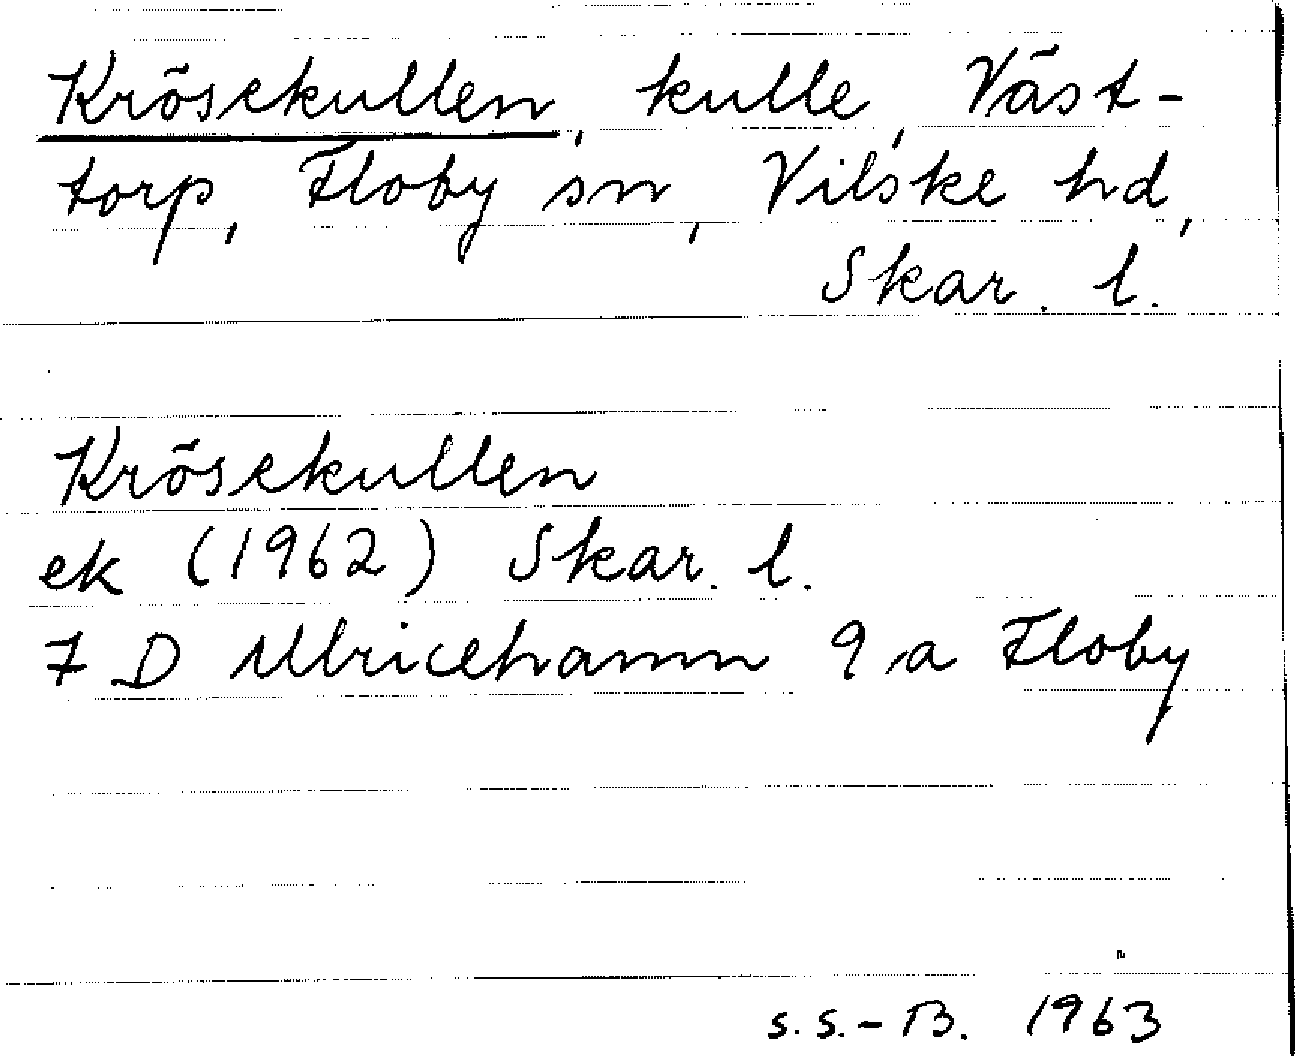 Krösekullen, kulle, Väst-
torp, Floby sn, Vilske hd,
Skar. l.
Krösekullen
ek (1962) Skar. l.
7 D Ulricehamn 9 a Floby
s.s.-B. 1963